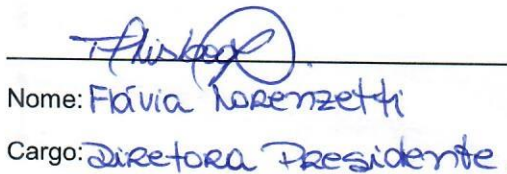 Nome: Flávia Lorenzetti
Cargo: Diretora Presidente